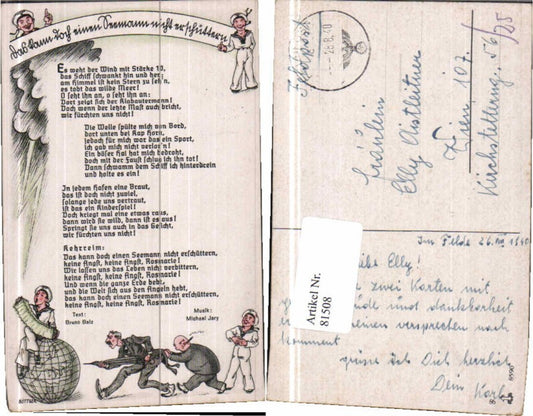 Das kann doch einen Seemann nicht erschüttern
Es weht der Wind mit Stärke 10,
das Schiff schwankt hin und her;
am Himmel ist kein Stern zu seh'n,
es tobt das wilde Meer!
O seht ihn an, o seht ihn an:
Dort zeigt sich der Klabautermann!
Doch wenn der letzte Mast auch bricht,
wir fürchten uns nicht!
Die Welle spülte mich von Bord,
dort unten bei Kap Horn,
jedoch für mich war das ein Sport,
ich gab mich nicht verlor'n!
Ein böser Hai hat mich bedroht,
doch mit der Faust schlug ich ihn tot!
Dann schwamm dem Schiff ich hinterdrein
und holte es ein!
In jedem Hafen eine Braut,
das ist doch nicht zuviel,
solange jede uns vertraut,
ist das ein Kinderspiel!
Doch kriegt mal eine etwas raus,
dann wird sie wild, dann ist es aus!
Springt sie uns auch in das Gesicht,
wir fürchten uns nicht!
Kehrreim:
Das kann doch einen Seemann nicht erschüttern,
keine Angst, keine Angst, Rosmarie!
Wir lassen uns das Leben nicht verbittern,
keine Angst, keine Angst, Rosmarie!
Und wenn die ganze Erde bebt,
und die Welt sich aus den Angeln hebt,
das kann doch einen Seemann nicht erschüttern,
keine Angst, keine Angst, Rosmarie!
Text: Musik:
Bruno Balz Michael Jary
Feldpost
Fräulein
Elly
Wien 107.
Im Felde 26.
Elly!
zwei Karten mit
und dankbarkeit
versprechen nach
kommend
grüße ich Dich herzlich
Dein Karl
Artikel Nr.
81508